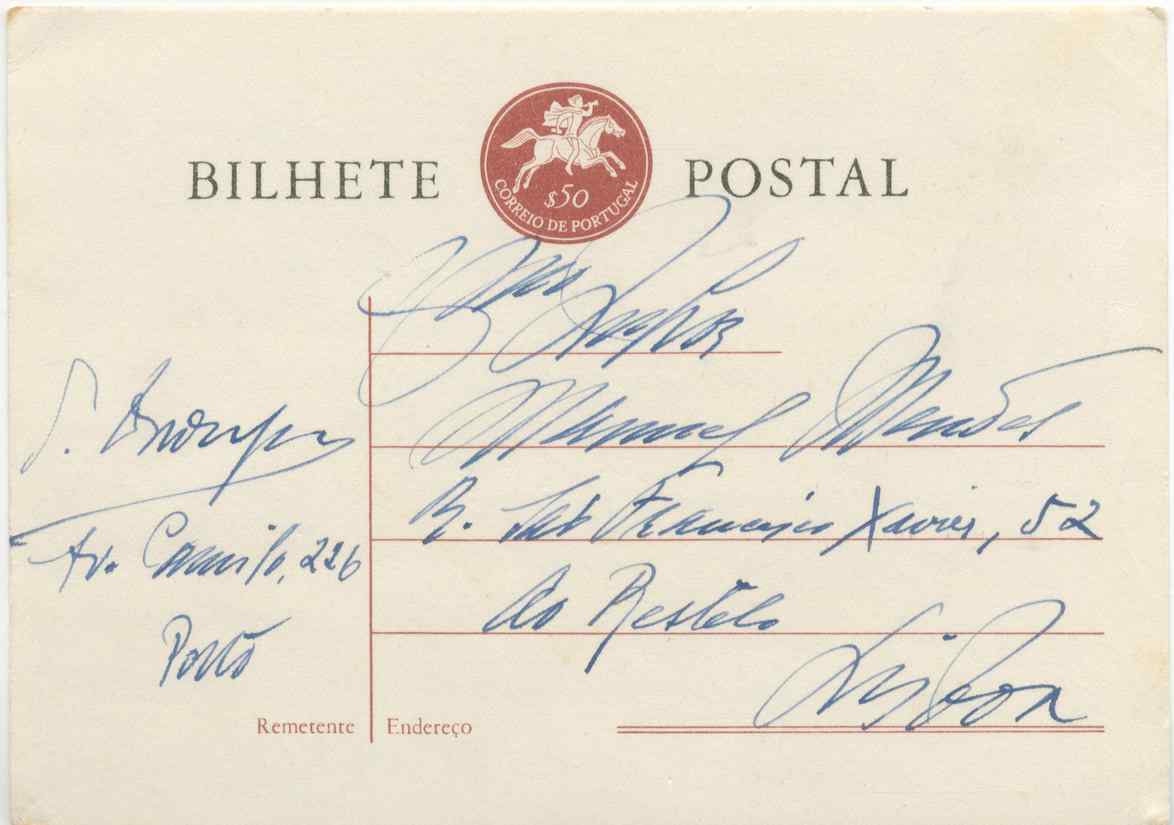 BILHETE POSTAL
$50
CORREIO DE PORTUGAL
Manuel Mendes
R. São Francisco Xavier, 52
ao Restelo
Lisboa
Av. Camilo, 226
Porto
Remetente
Endereço